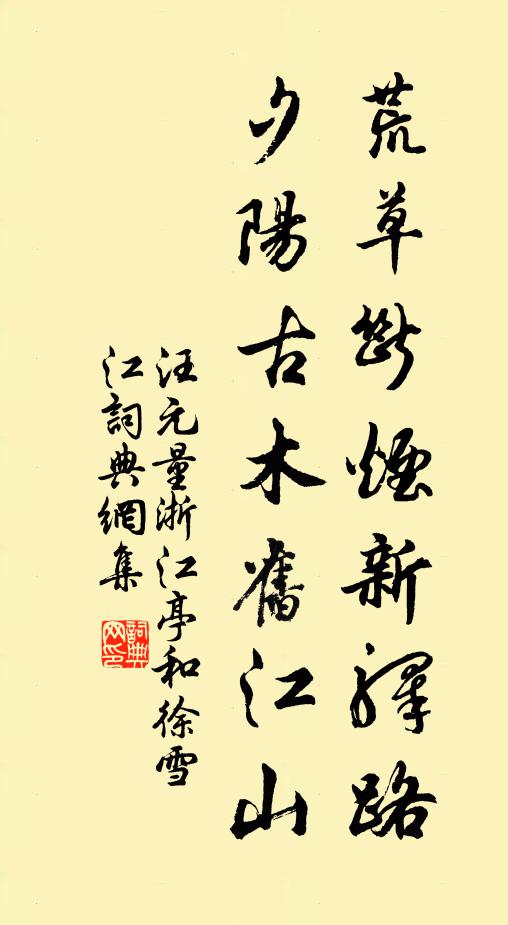 荒草斷煙新驛路
夕陽古木舊江山
汪元量浙江亭和徐雪
江詞典網集
詞典網印